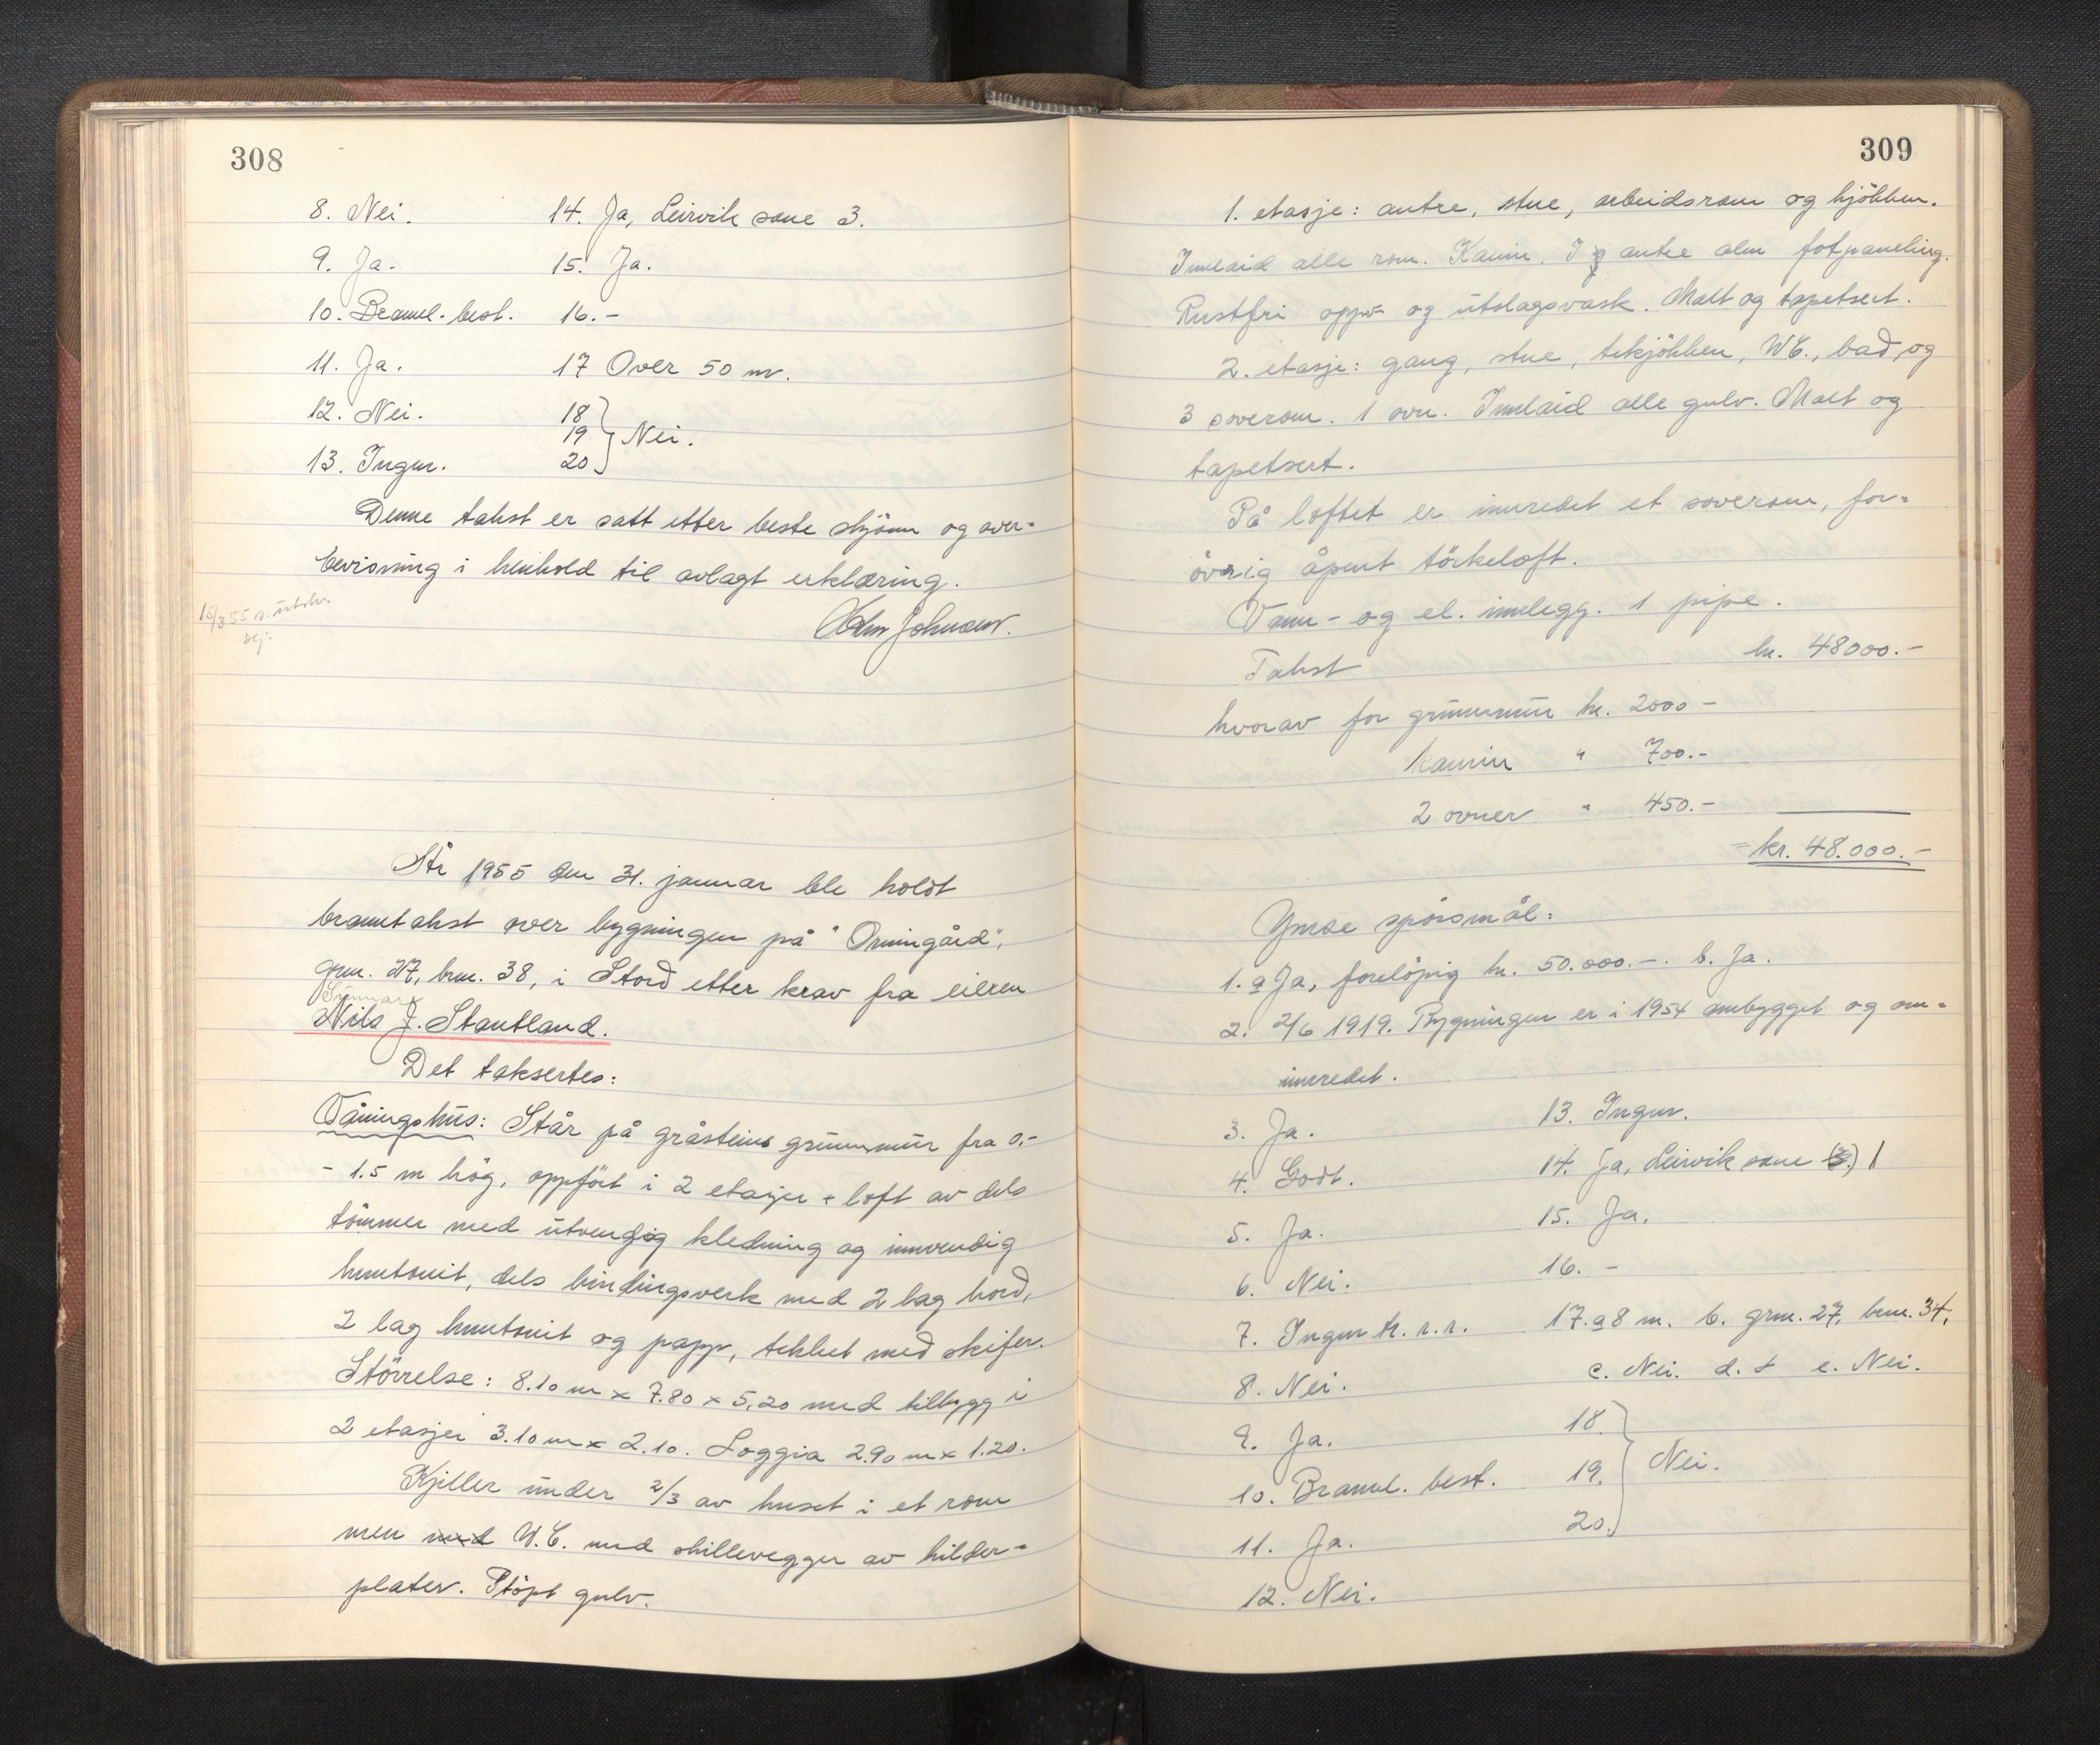 308
8. Nei. 14. Ja, Leirvik sone 3.
9. Ja. 15. Ja.
10. Brannv. best. 16. –
11. Ja. 17 Over 50 m.
12. Nei. 18
19 Nei.
13. Ingen. 20
Denne takst er satt etter beste skjönn og over-
bevisning i henhold til avlagt erklæring.
Johnsen.
År 1955 den 31. januar ble holdt
branntakst over bygningen på "Ormingård",
grn. 27, brn. 38, i Stord etter krav fra eieren
Gunnar
Nils J. Stautland.
Det taksertes:
Våningshus: Står på gråsteins grunnmur fra 0.-
- 1.5 m hög, oppfört i 2 etasjer + loft av dels
tömmer med utvendig kledning og innvendig
huntonit, dels bindingsverk med 2 lag bord,
2 lag huntonit og papp, tekket med skifer.
Störrelse: 8.10 m x 7.80 x 5.20 med tilbygg i
2 etasjer 3.10 m x 2.10. Loggia 2.90 m x 1.20.
Kjeller under 2/3 av huset i et rom
men med W.C. med skillevegger av hilder-
plater. Stöpt gulv.
309
1. etasje: entre, stue, arbeidsrom og kjökken.
Innlaid alle rom. Kamin. I entre alm fotpaneling.
Rustfri oppv- og utslagsvask. Malt og tapetsert.
2. etasje: gang, stue, tekjökken, WC., bad og
3 soverom. 1 ovn. Innlaid alle gulv. Malt og
tapetsert.
På loftet er innredet et soverom, for-
övrig åpent törkeloft.
Vann- og el. innlegg. 1 pipe.
Takst kr. 48000.-
hvorav for grunnmur kr. 2000 -
kamin " 700.-
2 ovner " 450.-
= kr. 48.000.-
Ymse spörsmål:
1. a Ja, forelöpig kr. 50.000.-. b. Ja.
2. 2/6 1919. Bygningen er i 1954 ombygget og om-
innredet.
3. Ja. 13. Ingen.
4. Godt. 14. Ja, Leirvik sone (3.) 1
5. Ja. 15. Ja.
6. Nei. 16. -
7. Ingen tr. r.r. 17. a 8 m. b. grn. 27, brn. 34,
8. Nei. c. Nei. d. + e. Nei.
9. Ja. 18.
10. Brannv. best. 19. Nei.
11. Ja. 20.
12. Nei.